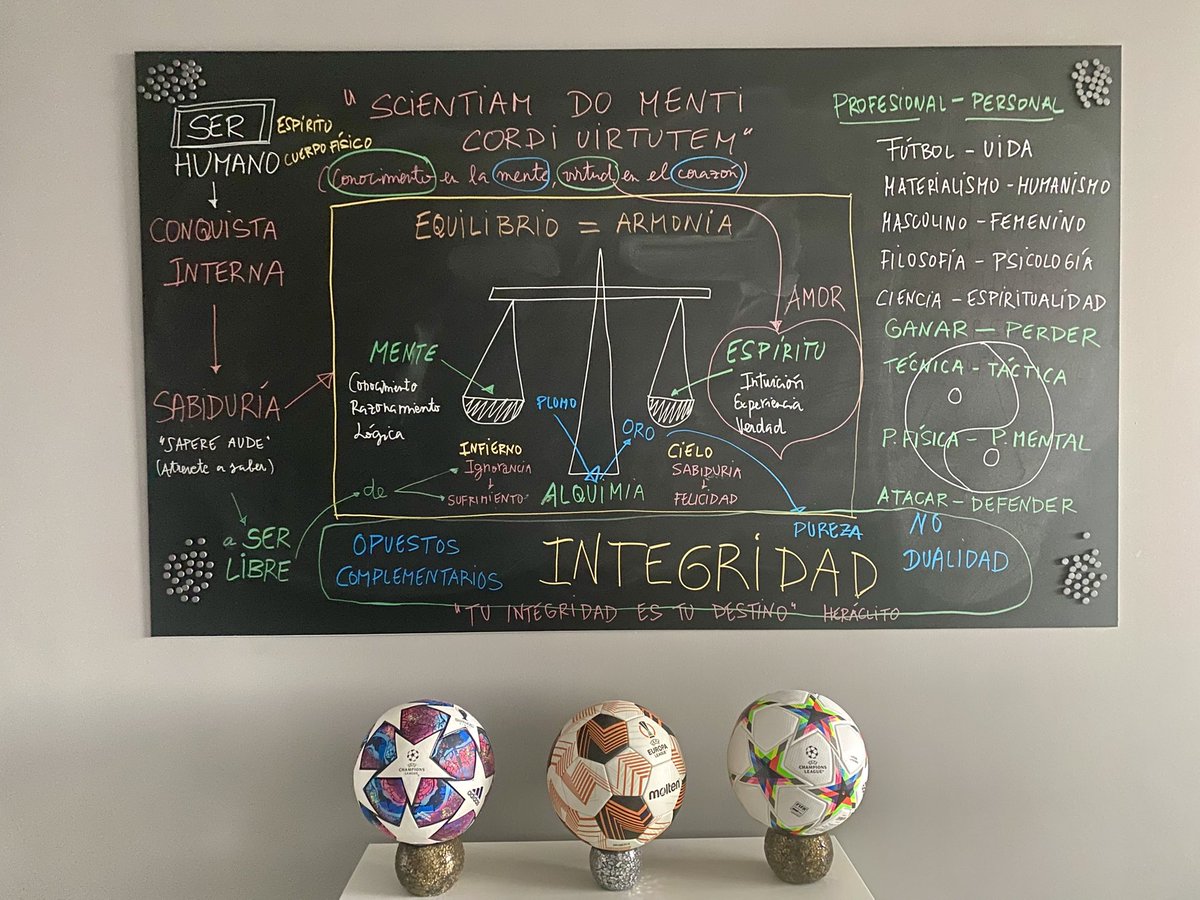 SER
HUMANO
ESPÍRITU
CUERPO FÍSICO
CONQUISTA
INTERNA
SABIDURÍA
"SAPERE AUDE"
(Atrevete a saber)
a SER
LIBRE
"SCIENTIAM DO MENTI
CORDI VIRTUTEM"
(Conocimiento en la mente, virtud en el corazón)
EQUILIBRIO = ARMONÍA
AMOR
MENTE
Conocimiento
Razonamiento
Lógica
ESPÍRITU
Intuición
Experiencia
Verdad
PLOMO
ORO
ALQUIMIA
de
INFIERNO
Ignorancia
SUFRIMIENTO
CIELO
SABIDURIA
FELICIDAD
PUREZA
OPUESTOS
COMPLEMENTARIOS
INTEGRIDAD
NO
DUALIDAD
"TU INTEGRIDAD ES TU DESTINO" HERÁCLITO
PROFESIONAL - PERSONAL
FÚTBOL - VIDA
MATERIALISMO - HUMANISMO
MASCULINO - FEMENINO
FILOSOFÍA - PSICOLOGÍA
CIENCIA - ESPIRITUALIDAD
GANAR - PERDER
TÉCNICA - TÁCTICA
P. FÍSICA - P. MENTAL
ATACAR - DEFENDER
UEFA
CHAMPIONS
LEAGUE
adidas
UEFA
EUROPA
LEAGUE
molten
UEFA
CHAMPIONS
LEAGUE
FIFA